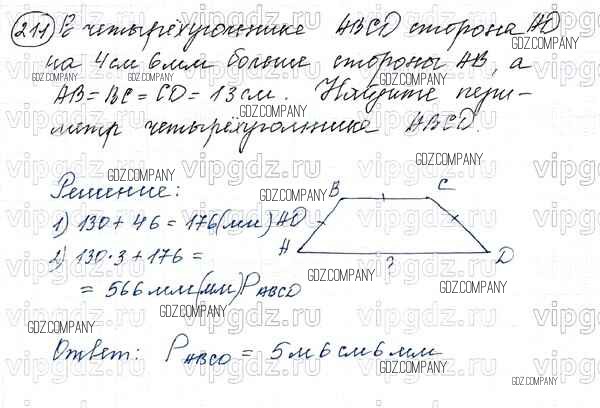 211 В четырёхугольнике ABCD сторона AD
на 4 см 6 мм больше стороны AB, а
AB = BC = CD = 13 см. Найдите пери-
метр четырёхугольника ABCD.
Решение:
1) 130 + 46 = 176 (мм) AD
2) 130·3 + 176 =
= 566 мм (мм) P ABCD
B C
A D
?
Ответ: P ABCD = 5 м 6 см 6 мм
vipgdz.ru
GDZ.COMPANY